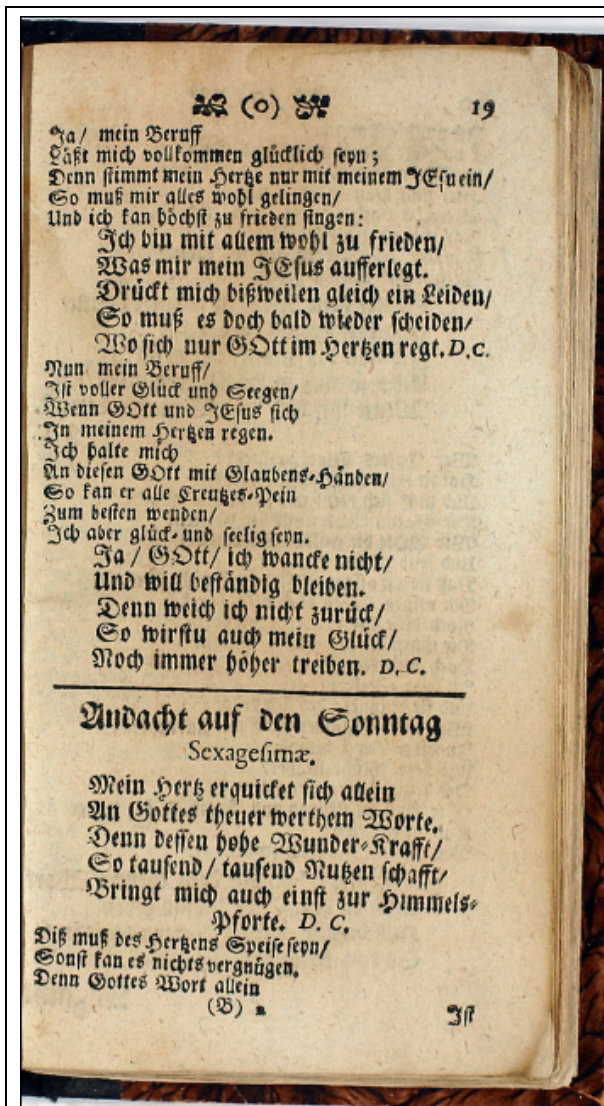 (o) 19
Ja/ mein Beruff
Läßt mich vollkommen glücklich seyn;
Denn stimmt mein Hertze nur mit meinem JEsu ein/
So muß mir alles wohl gelingen/
Und ich kan höchst zu frieden singen:
Ich bin mit allem wohl zu frieden/
Was mir mein JEsus aufferlegt.
Drückt mich bißweilen gleich ein Leiden/
So muß es doch bald wieder scheiden/
Wo sich nur GOtt im Hertzen regt. D.C.
Nun mein Beruff/
Ist voller Glück und Seegen/
Wenn GOtt und JEsus sich
In meinem Hertzen regen.
Ich halte mich
An diesen GOtt mit Glaubens-Händen/
So kan er alle Creutzes-Pein
Zum besten wenden/
Ich aber glück- und seelig seyn.
Ja / GOtt/ ich wancke nicht/
Und will beständig bleiben.
Denn weich ich nicht zurück/
So wirstu auch mein Glück/
Noch immer höher treiben. D. C.
Andacht auf den Sonntag
Sexagesimæ.
Mein Hertz erquicket sich allein
An Gottes theuer werthem Worte.
Denn dessen hohe Wunder-Krafft/
So tausend/ tausend Nutzen schafft/
Bringt mich auch einst zur Himmels-
Pforte. D. C.
Diß muß des Hertzens Speise seyn/
Sonst kan es nichts vergnügen.
Denn Gottes Wort allein
(B) 2
Ist